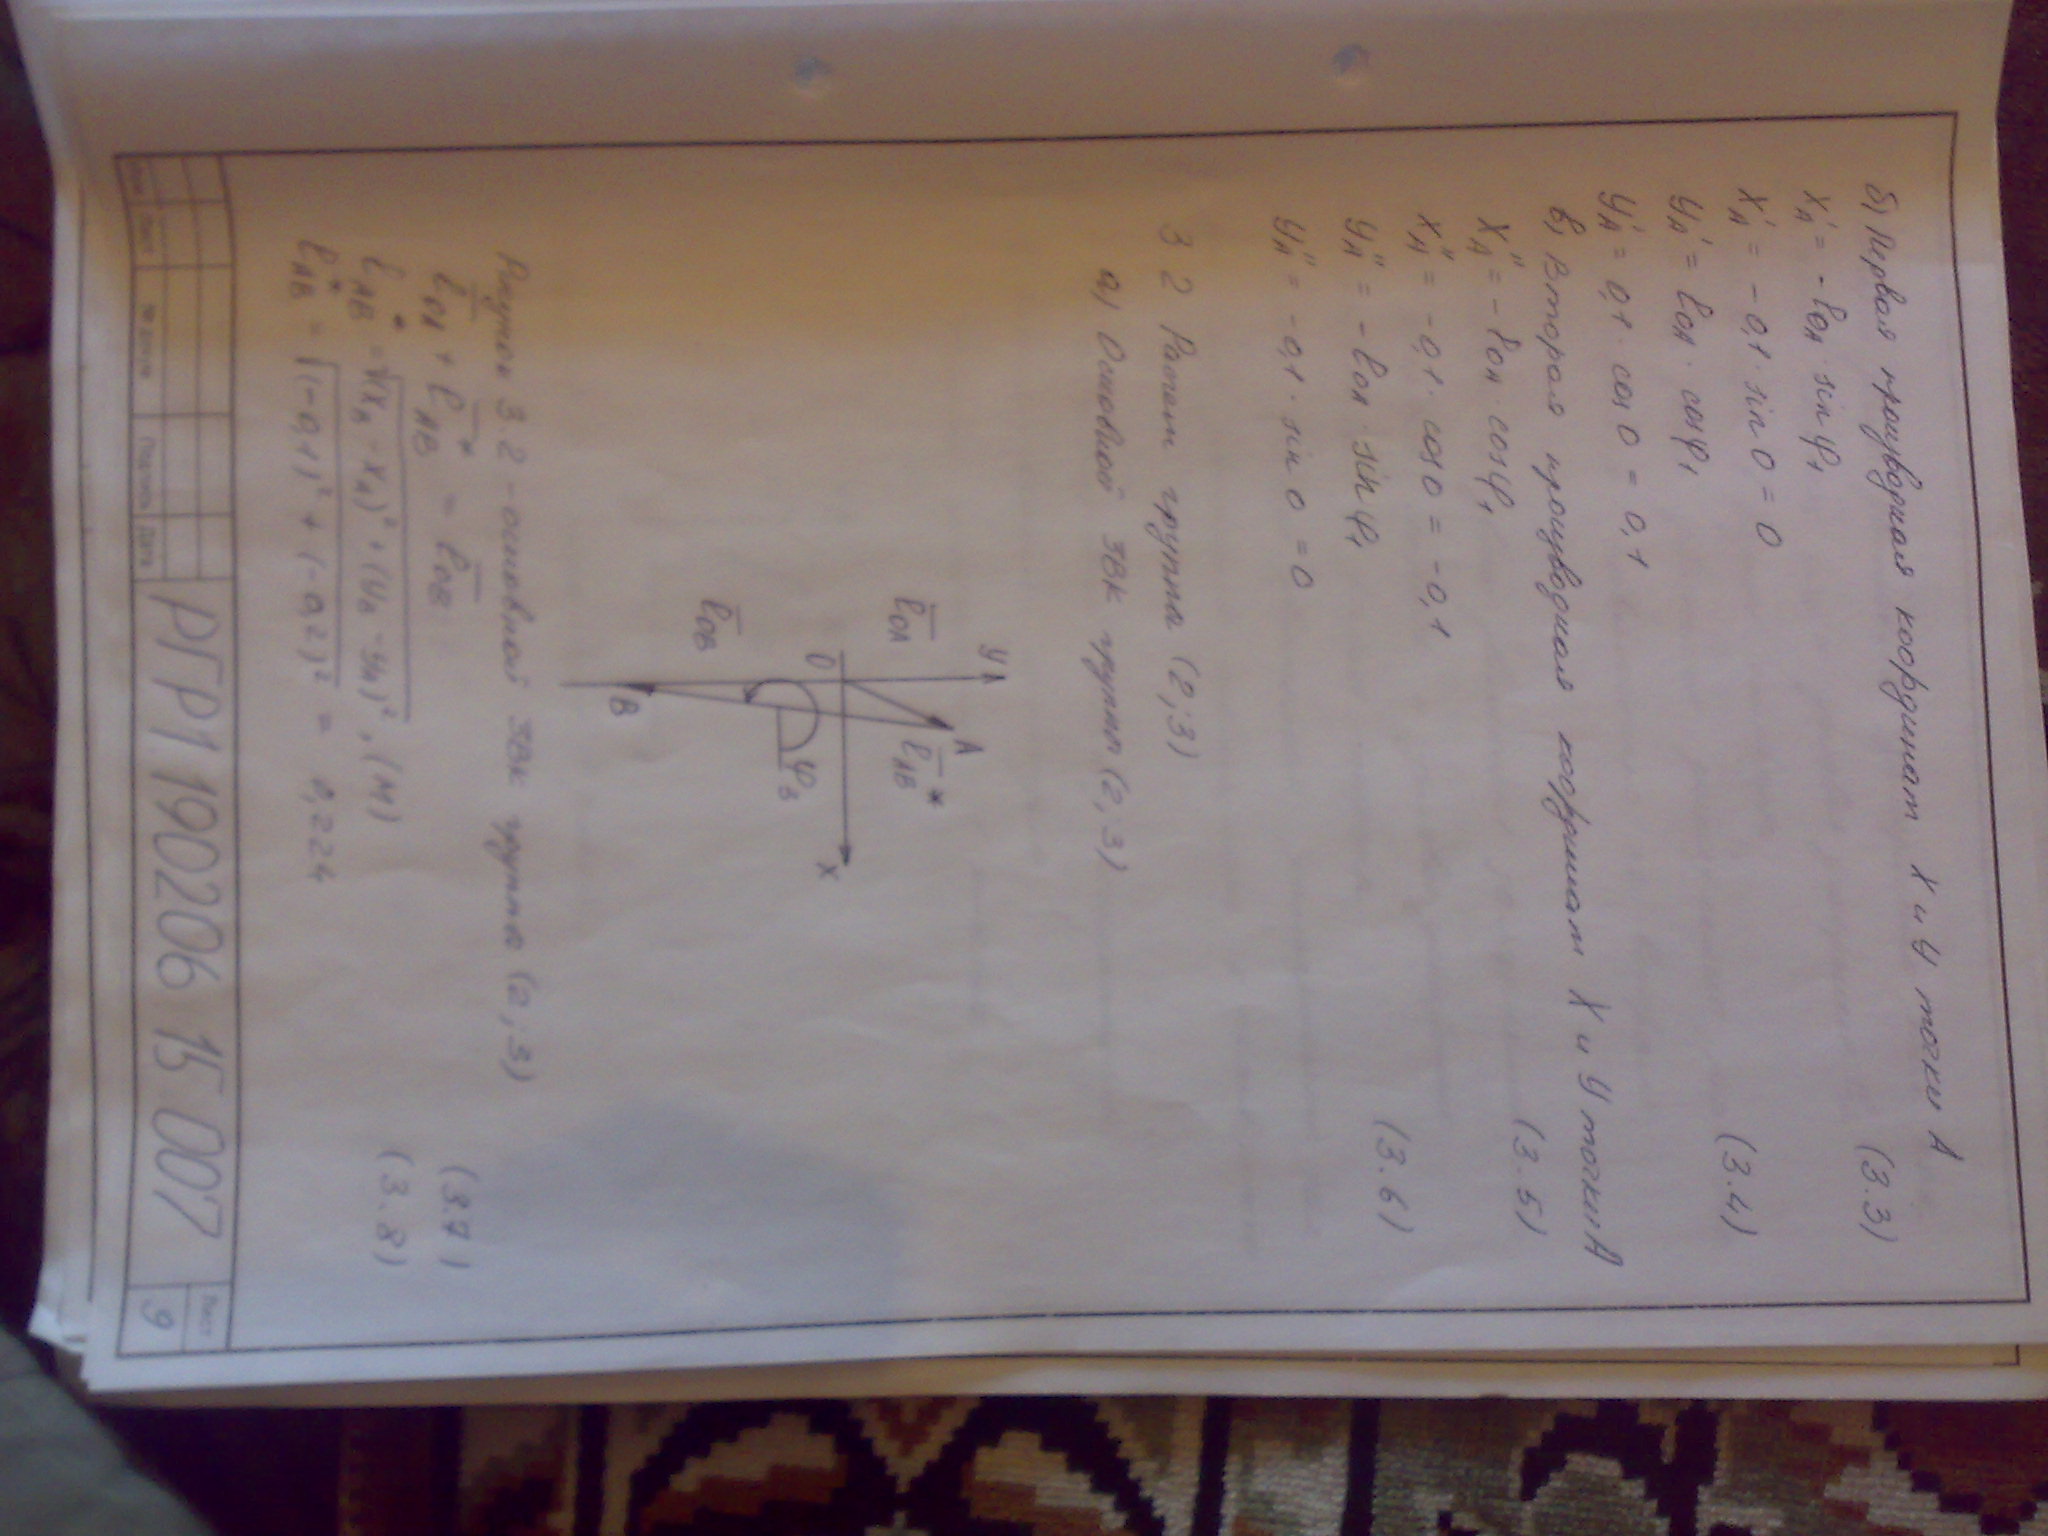 б) Первая производная координат X и У точки А
X'A = - lOA · sin φ1 (3.3)
X'A = - 0,1 · sin 0 = 0
У'A = lOA · cos φ1 (3.4)
У'A = 0,1 · cos 0 = 0,1
в) Вторая производная координат X и У точки А
X''A = - lOA · cos φ1 (3.5)
X''A = -0,1 · cos 0 = -0,1
У''A = - lOA · sin φ1 (3.6)
У''A = -0,1 · sin 0 = 0
3.2 Расчет группы (2,3)
а) Основной ЗВК групп (2,3)
У
A
lOA
lAB*
O
X
φ3
lOB
B
Рисунок 3.2 - основной ЗВК группа (2,3)
lOA + lAB* = lOB (3.7)
lAB* = √(XB - XA)² + (УB - УA)², (м) (3.8)
lAB* = √(-0,1)² + (-0,2)² = 0,224
Лист № докум. Подпись Дата
РГР1 190206 15 007
Лист
9